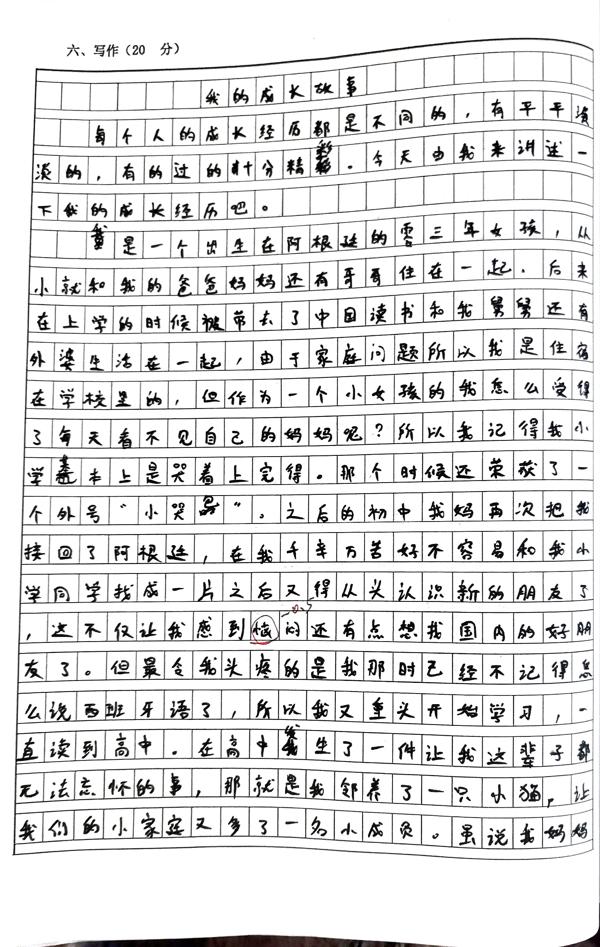 六、写作（20 分）
我的成长故事
每个人的成长经历都是不同的，有平平淡
淡的，有的过的十分精彩。今天由我来讲述一
下我的成长经历吧。
我是一个出生在阿根廷的零三年女孩，从
小就和我的爸爸妈妈还有哥哥住在一起．后来
在上学的时候被带去了中国读书和我舅舅还有
外婆生活在一起，由于家庭问题所以我是住宿
在学校里的，但作为一个小女孩的我怎么受得
了每天看不见自己的妈妈呢？所以我记得我小
学基本上是哭着上完得。那个时候还荣获了一
个外号“小哭  ”．之后的初中我妈再次把我
接回了阿根廷，在我千辛万苦好不容易和我小
学同学找成一片之后又得从头认识新的朋友了
，这不仅让我感到恼闷还有点想我国内的好朋
友了。但最令我头疼的是我那时已经不记得怎
么说西班牙语了，所以我又重头开始学习，一
直读到高中．在高中发生了一件让我这辈子都
无法忘怀的事，那就是我领养了一只小猫，让
我们的小家庭又多了一名小成员。虽说我妈妈